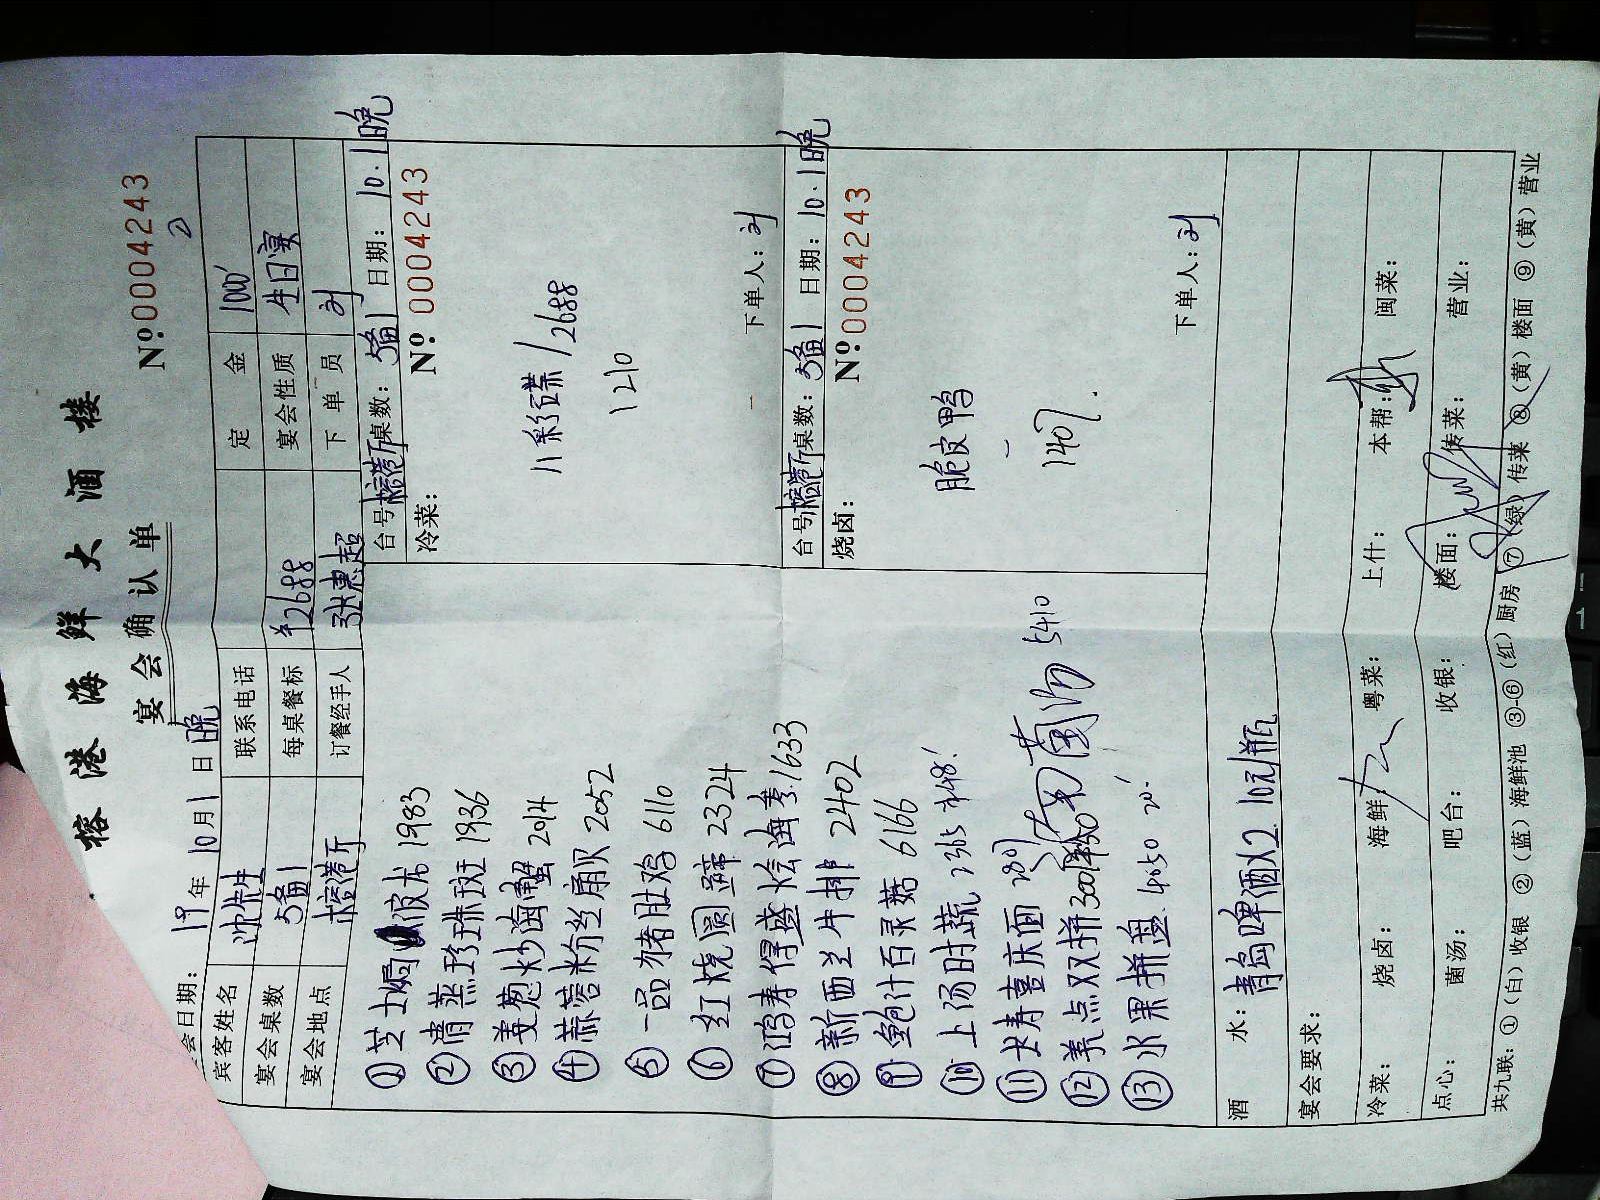 榕港海鲜大酒楼
宴会确认单
№:0004243
宴会日期: 19年10月1日晚
宾客姓名 沈先生 联系电话 定金 1000
宴会桌数 5备1 每桌餐标 ¥2688 宴会性质 生日宴
宴会地点 榕港厅 订餐经手人 张惠超 下单员 刘
①芝士焗波龙 1983
②清蒸珍珠斑 1936
③姜葱炒海蟹 2014
④蒜蓉粉丝扇贝 2052
⑤一品猪肚鸡 6110
⑥红烧圆蹄 2324
⑦鸿寿得盛烩海参 1633
⑧新西兰牛排 2402
⑨鲍汁百灵菇 6166
⑩上汤时蔬 2365 ¥48
⑪长寿喜庆面
⑫美点双拼
5410
⑬水果拼盘 4050 20
台号 榕港厅 桌数: 5备1 日期: 10.1晚
冷菜: №0004243
八彩碟 / 2688
1210
下单人: 刘
台号 榕港厅 桌数: 5备1 日期: 10.1晚
烧卤: №:0004243
脆皮鸭
1407
下单人: 刘
酒水: 青岛啤酒 10元/瓶
宴会要求:
冷菜: 烧卤: 海鲜: 粤菜: 上什: 本帮: 闽菜:
点心: 菌汤: 吧台: 收银: 楼面: 传菜: 营业:
共九联: ①(白)收银 ②(蓝)海鲜池 ③-⑥(红)厨房 ⑦(绿)传菜 ⑧(黄)楼面 ⑨(黄)营业